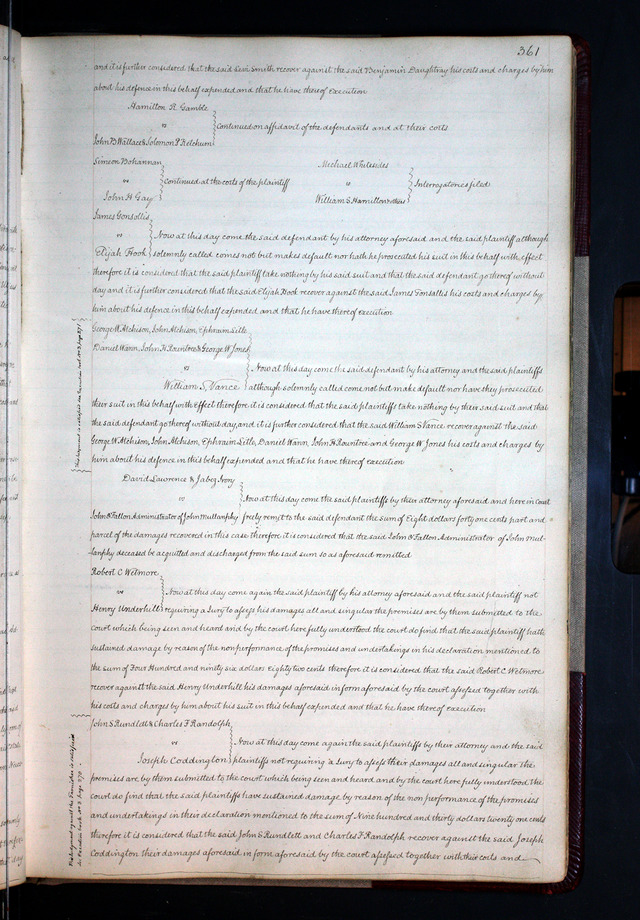 361
and it is further considered that the said Levi Smith recover against the said Benjamin Daughtray his costs and charges by him
about his defence in this behalf expended and that he have thereof execution
Hamilton R. Gamble
vs
Continued on affidavit of the defendants and at their costs
John B Wallace & Solomon P Ketchum
Simeon Bohannan
vs
Continued at the costs of the plaintiff
John H Gay
Michael Whitesides
vs
Interrogatories filed
William S Hamilton & others
James Gonsollis
vs
Now at this day come the said defendant by his attorney aforesaid and the said plaintiff although
Elijah Hook
solemnly called comes not but makes default nor hath he prosecuted his suit in this behalf with effect
therefore it is considered that the said plaintiff take nothing by his said suit and that the said defendant go thereof without
day and it is further considered that the said Elijah Hook recover against the said James Gonsallis his costs and charges by
him about his defence in this behalf expended and that he have thereof execution
George W Atchison, John Atchison, Ephraim Little
Daniel Wann, John H Rountree & George W Jones
vs
Now at this day come the said defendant by his attorney and the said plaintiffs
William S. Vance
although solemnly called come not but make default nor have they prosecuted
their suit in this behalf with Effect therefore it is considered that the said plaintiffs take nothing by their said suit and that
the said defendant go thereof without day, and it is further considered that the said William S Vance recover against the said
George W Atchison, John Atcheson, Ephraim Little, Daniel Wann, John H Rountree and George W Jones his costs and charges by
him about his defence in this behalf expended and that he have thereof execution
David Lawrence & Jabez Ivory
vs
Now at this day come the said plaintiffs by their attorney aforesaid and here in Court
John O'Fallon Administrator of John Mullanphy
freely remit to the said defendant the sum of Eight dollars forty one cents part and
parcel of the damages recovered in this case therefore it is considered that the said John O'Fallon Administrator of John Mul-
lanphy deceased be acquitted and discharged from the said sum so as aforesaid remitted
Robert C Wetmore
vs
Now at this day come again the said plaintiff by his attorney aforesaid and the said plaintiff not
Henry Underhill
requiring a Jury to assess his damages all and singular the premises are by them submitted to the
court which being seen and heard and by the court here fully understood the court do find that the said plaintiff hath
sustained damage by reason of the nonperformance of the promises and undertakings in his declaration mentioned to
the sum of Four Hundred and ninety six dollars Eighty two cents therefore it is considered that the said Robert C Wetmore
recover against the said Henry Underhill his damages aforesaid in form aforesaid by the court assessed together with
his costs and charges by him about his suit in this behalf expended and that he have thereof execution
John S Rundlett & Charles F Randolph
vs
Now at this day come again the said plaintiffs by their attorney and the said
Joseph Coddington
plaintiffs not requiring a Jury to assess their damages all and singular the
premises are by them submitted to the court which being seen and heard and by the court here fully understood the
court do find that the said plaintiffs have sustained damage by reason of the non performance of the promises
and undertakings in their declaration mentioned to the sum of Nine hundred and thirty dollars twenty one cents
therefore it is considered that the said John S Rundlett and Charles F Randolph recover against the said Joseph
Coddington their damages aforesaid in form aforesaid by the court assessed together with their costs and